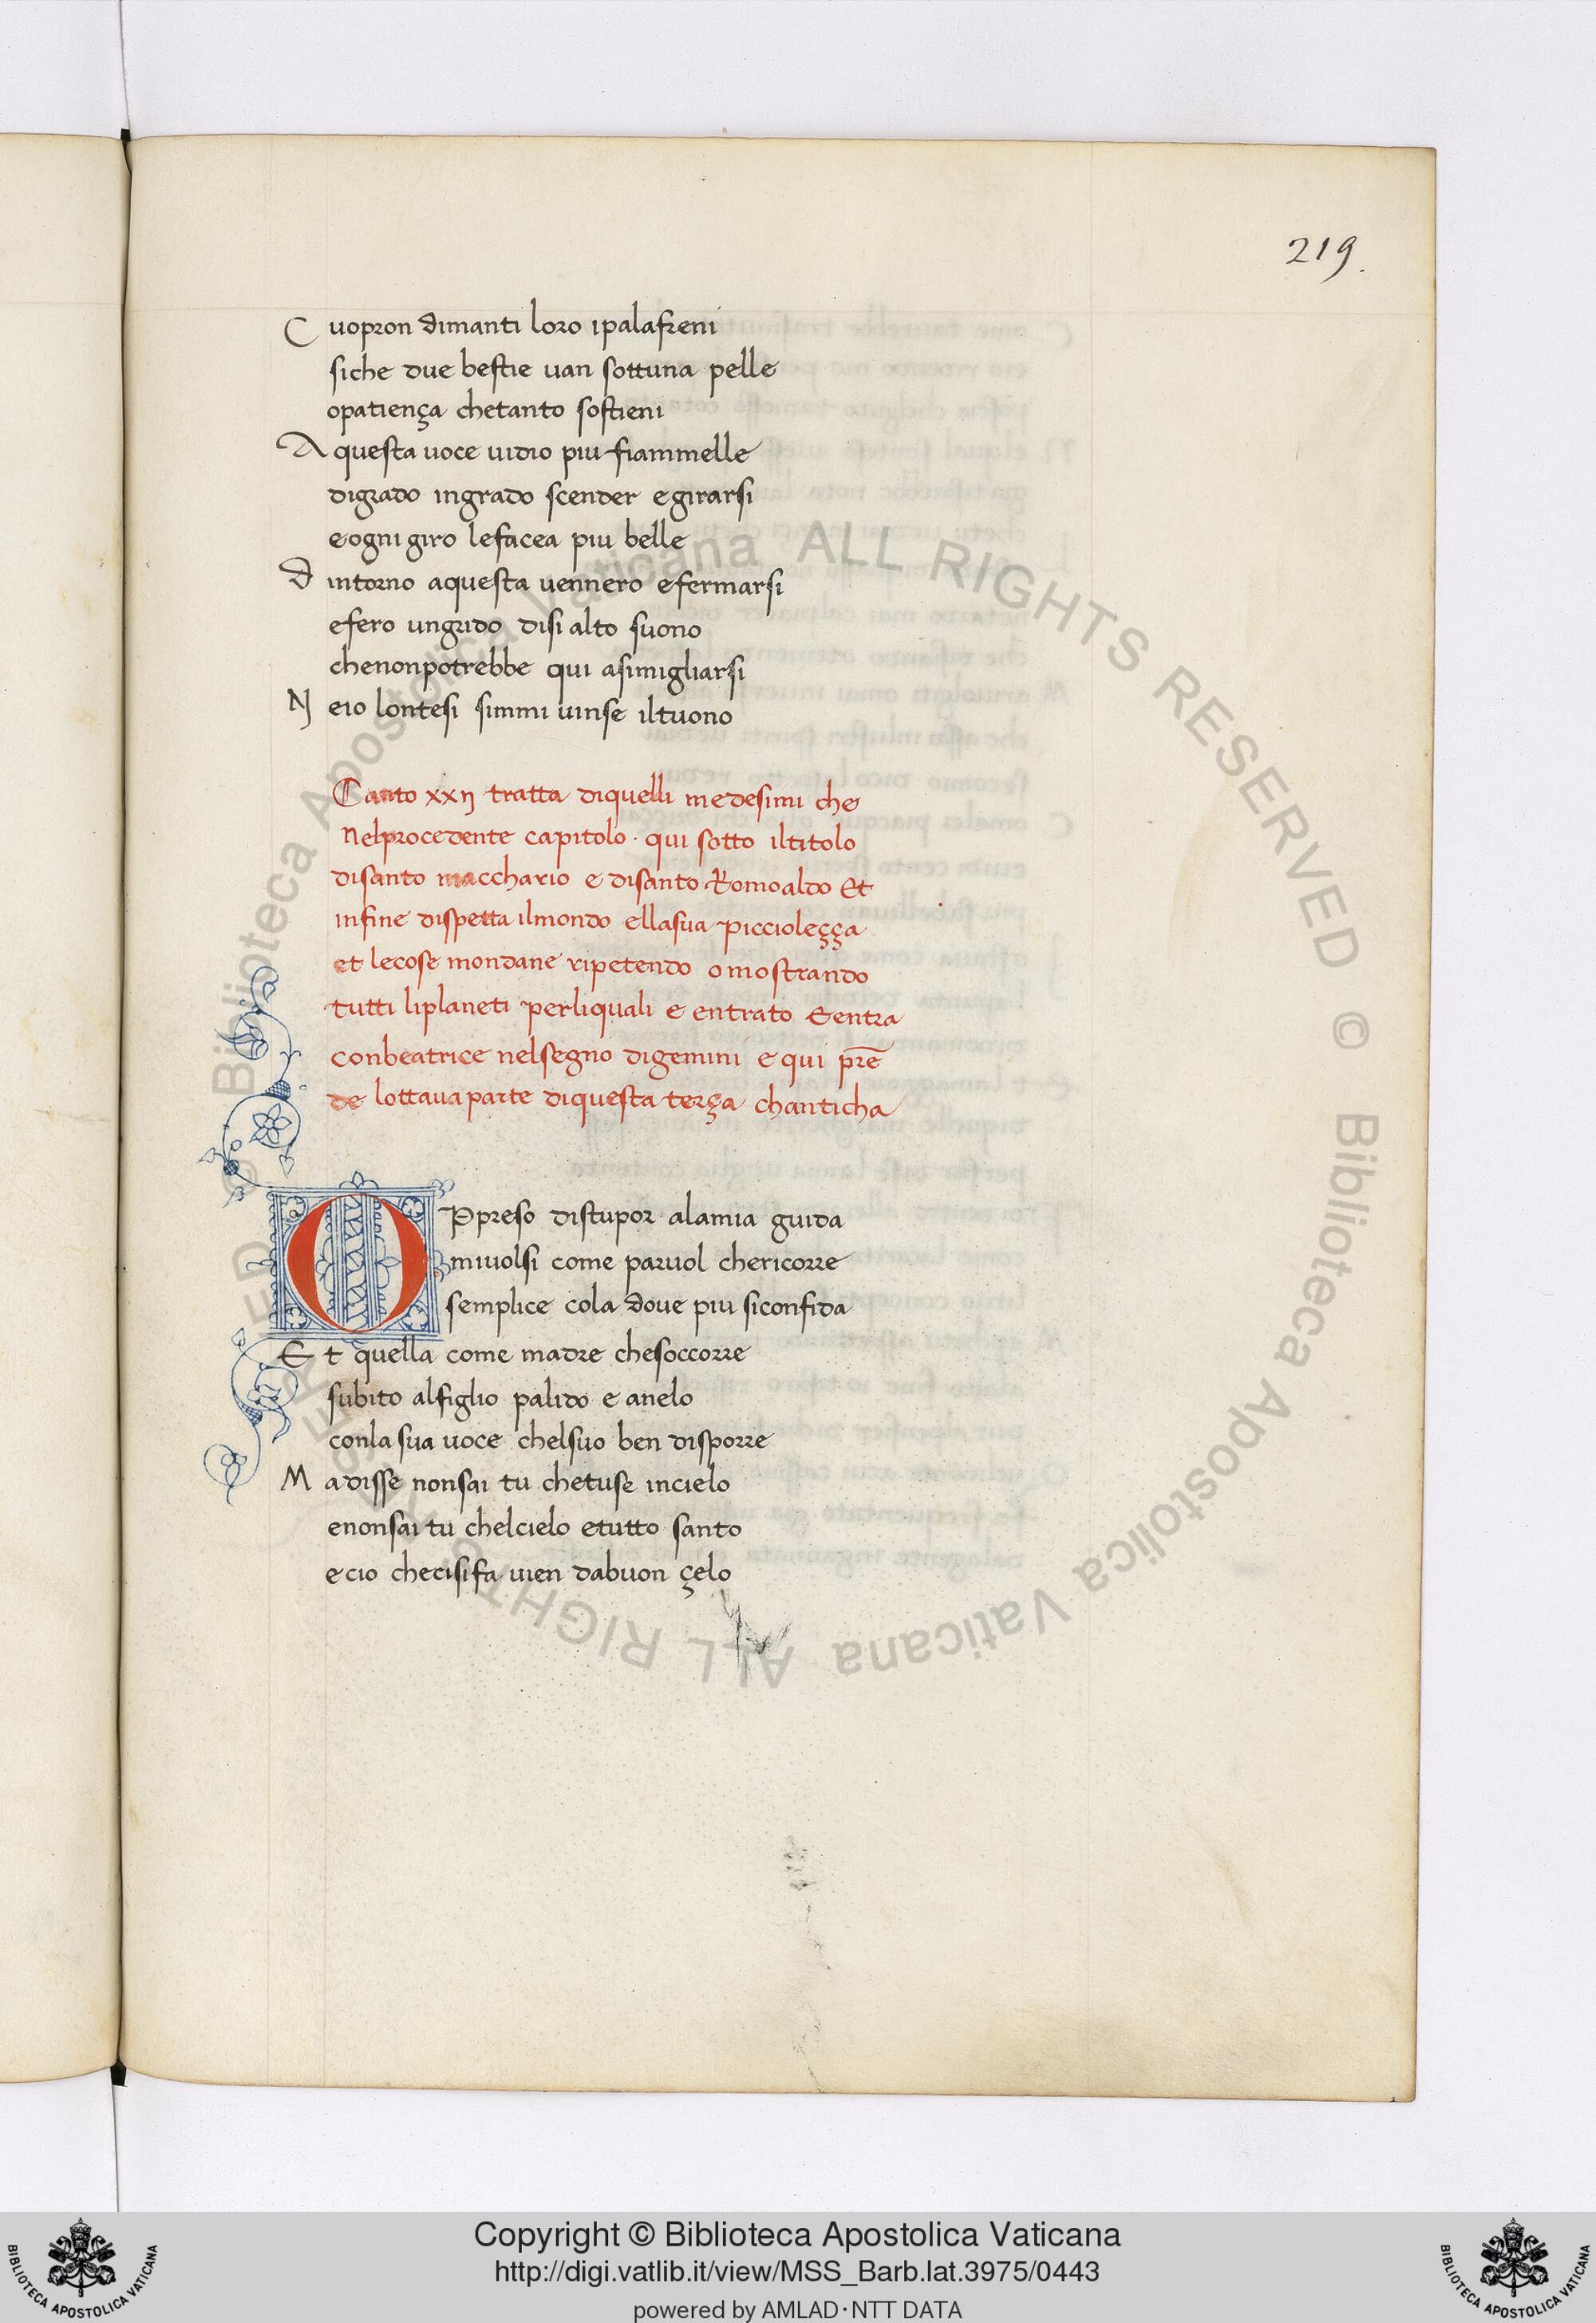 219.
C uopron dimanti loro ipalafreni
siche due bestie uan sottuna pelle
opatiença chetanto sostieni
A questa uoce uidio piu fiammelle
digrado ingrado scender egirarsi
eogni giro lefacea piu belle
D intorno aquesta uennero efermarsi
efero ungrido disi alto suono
chenonpotrebbe qui asimigliarsi
N eio lontesi simmi uinse iltuono
Canto xxij tratta diquelli medesimi che
nelprocedente capitolo · qui sotto iltitolo
disanto macchario e disanto Romoaldo Et
infine dispetta ilmondo ellasua piccioleçça
et lecose mondane ripetendo o mostrando
tutti liplaneti perliquali e entrato Eentra
conbeatrice nelsegno digemini e qui prē
de lottaua parte diquesta terça chanticha
OPpreso distupor alamia guida
miuolsi come paruol chericorre
semplice cola doue piu siconfida
E t quella come madre chesoccorre
subito alfiglio palido e anelo
conla sua uoce chelsuo ben disporre
M adisse nonsai tu chetuse incielo
enonsai tu chelcielo etutto santo
ecio checisifa uien dabuon çelo
© Biblioteca Apostolica Vaticana ALL RIGHTS RESERVED © Biblioteca Apostolica Vaticana ALL RIGHTS RESERVED
Copyright © Biblioteca Apostolica Vaticana
http://digi.vatlib.it/view/MSS_Barb.lat.3975/0443
powered by AMLAD·NTT DATA
BIBLIOTECA APOSTOLICA VATICANA
BIBLIOTECA APOSTOLICA VATICANA